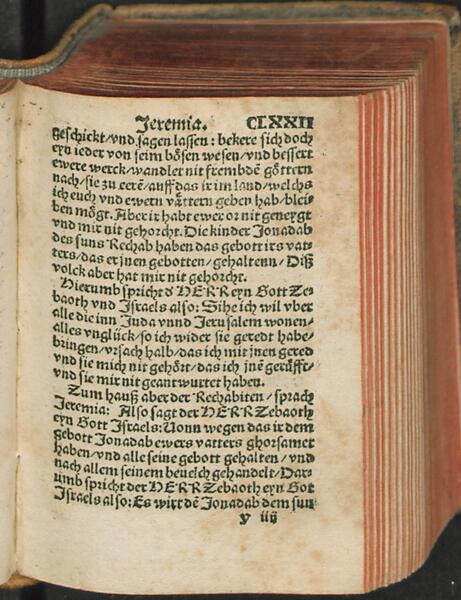 Jeremia. CLXXII
geschickt/vnd sagen lassen: bekere sich doch
eyn ieder von seim bösen wesen/vnd bessert
ewere werck/wandler nit frembdē göttern
nach/sie zu eerē/auff das ir im land/welchs
ich euch vnd ewern vättern geben hab/blei-
ben mögt. Aber ir habt ewer or nit geneygt
vnd mir nit gehorcht. Die kinder Jonadab
des suns Rechab haben das gebott irs vat-
ters/das er jnen gebotten/gehaltenn/Diß
volck aber hat mir nit gehorcht.
Hierumb spricht ď HERR eyn Gott Ze-
baoth vnd Israels also: Sihe ich wil vber
alle die inn Juda vnnd Jerusalem wonen/
alles vnglück/so ich wider sie geredt habe/
bringen/vrsach halb/das ich mit jnen gered
vnd sie mich nit gehört/das ich jnē gerüfft/
vnd sie mir nit geantwurtet haben.
Zum hauß aber der Rechabiten/sprach
Jeremia: Also sagt der HERR Zebaoth
eyn Gott Israels: Vonn wegen das ir dem
gebott Jonadab ewers vatters ghorsamet
haben/vnd alle seine gebott gehalten/vnd
nach allem seinem beuelch gehandelt/Dar-
umb spricht der HERR Zebaoth eyn Got
Israels also: Es wirt dē Jonadab dem sun
y iiij